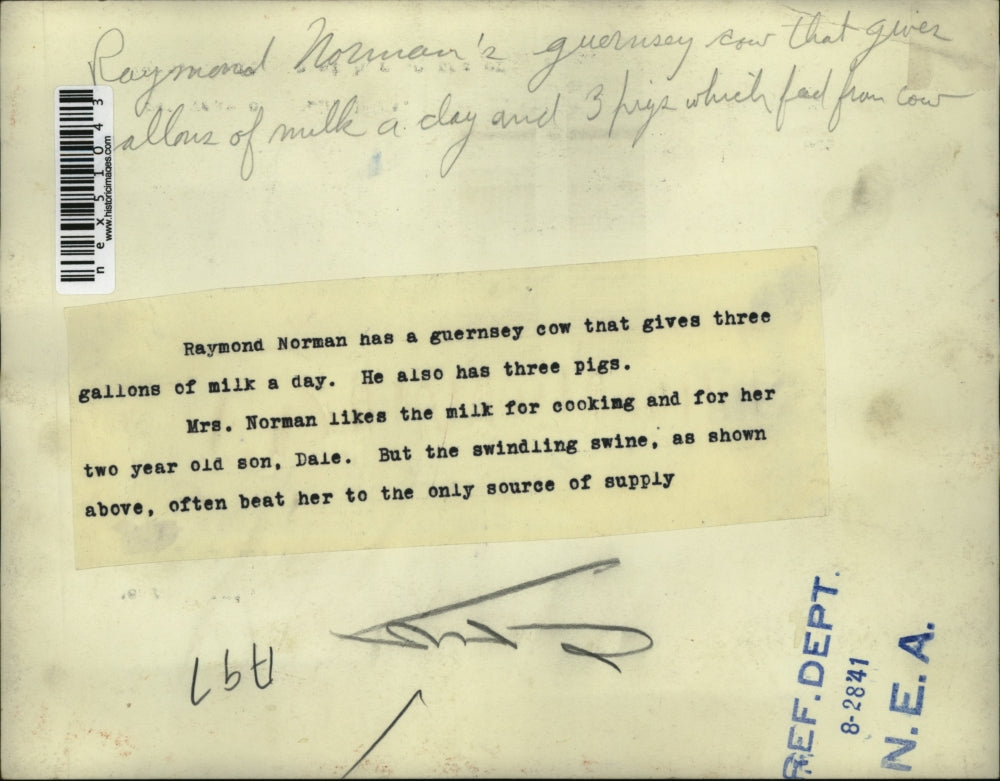 Raymond Norman's guernsey cow that gives
allons of milk a day and 3 pigs which feed from cow
nex51043
www.historicimages.com
Raymond Norman has a guernsey cow that gives three
gallons of milk a day. He also has three pigs.
Mrs. Norman likes the milk for cooking and for her
two year old son, Dale. But the swindling swine, as shown
above, often beat her to the only source of supply
A97
REF. DEPT.
8-28'41
N. E. A.